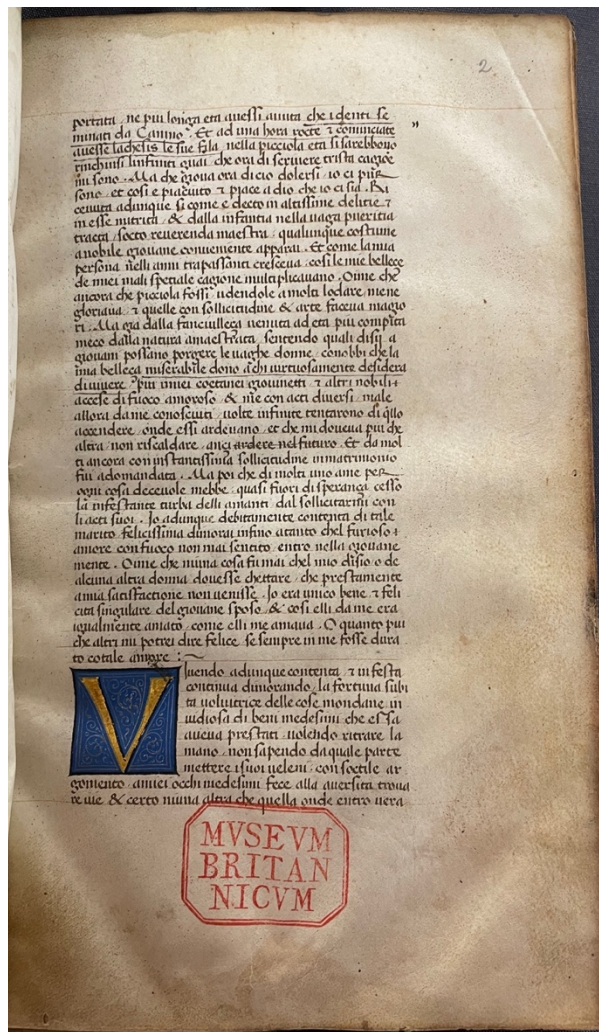 2
portata . ne piu longa eta auessi auuta che i denti se
minati da Camino . Et ad una hora rocte & cominciate "
auesse lachesis le sue fila . nella picciola eta si sarebbono
rinchiusi linfiniti guai che ora di scriuere trista cagione
mi sono . Ma che gioua ora di cio dolersi . io ci pur
sono . et cosi e piaciuto & piace a dio che io ci sia . Ri
ceuuta adunque si come e decto in altissime delitie &
in esse nutrita . & dalla infantia nella uaga pueritia
tracta . socto reuerenda maestra . qualunque costume
a nobile giouane conueniente apparai . Et come la mia
persona nelli anni trapassanti cresceua . cosi le mie bellece
de miei mali spetiale cagione multiplicauano . Oime che
ancora che picciola fossi . udendole a molti lodare mene
gloriaua . & quelle con sollicitudine & arte faceua magio
ri . Ma gia dalla fanciulleca uenuta ad eta piu compita
meco dalla natura amaestrata . sentendo quali disii a
giouani possano porgere le uaghe donne . conobbi che la
mia belleca miserabile dono a chi uirtuosamente desidera
di uiuere . piu miei coetanei giouinetti . & altri nobili
accese di fuoco amoroso . & me con acti diuersi . male
allora da me conosciuti . uolte infinite tentarono di quello
accendere . onde essi ardeuano . et che mi doueua piu che
altra . non riscaldare . anci ardere nel futuro . Et da mol
ti ancora con instantissima sollicitudine in matrimonio
fui adomandata . Ma poi che di molti uno a me per
ogni cosa deceuole mebbe . quasi fuori di speranca cesso
la infestante turba delli amanti dal sollicitarmi con
li acti suoi . Io adunque debitamente contenta di tale
marito . felicissima dimorai infino a tanto chel furioso
amore con fuoco non mai sentito . entro nella giouane
mente . Oime che niuna cosa fu mai chel mio disio o de
alcuna altra donna douesse chettare . che prestamente
a mia satisfactione non uenisse . Io era unico bene & feli
cita singulare del giouane sposo . & cosi elli da me era
igualmente amato . come elli me amaua . O quanto piu
che altri mi potrei dire felice . se sempre in me fosse dura
to cotale amore :~
Viuendo adunque contenta & in festa
continua dimorando . la fortuna subi
ta uoluitrice delle cose mondane in
uidiosa di beni medesimi che essa
aueua prestati . uolendo ritrare la
mano . non sapendo da quale parte
mettere i suoi ueleni . con soctile ar
gomento . a miei occhi medesimi fece alla auersita troua
re uie . & certo niuna altra che quella onde entro uera
MVSEVM
BRITAN
NICVM